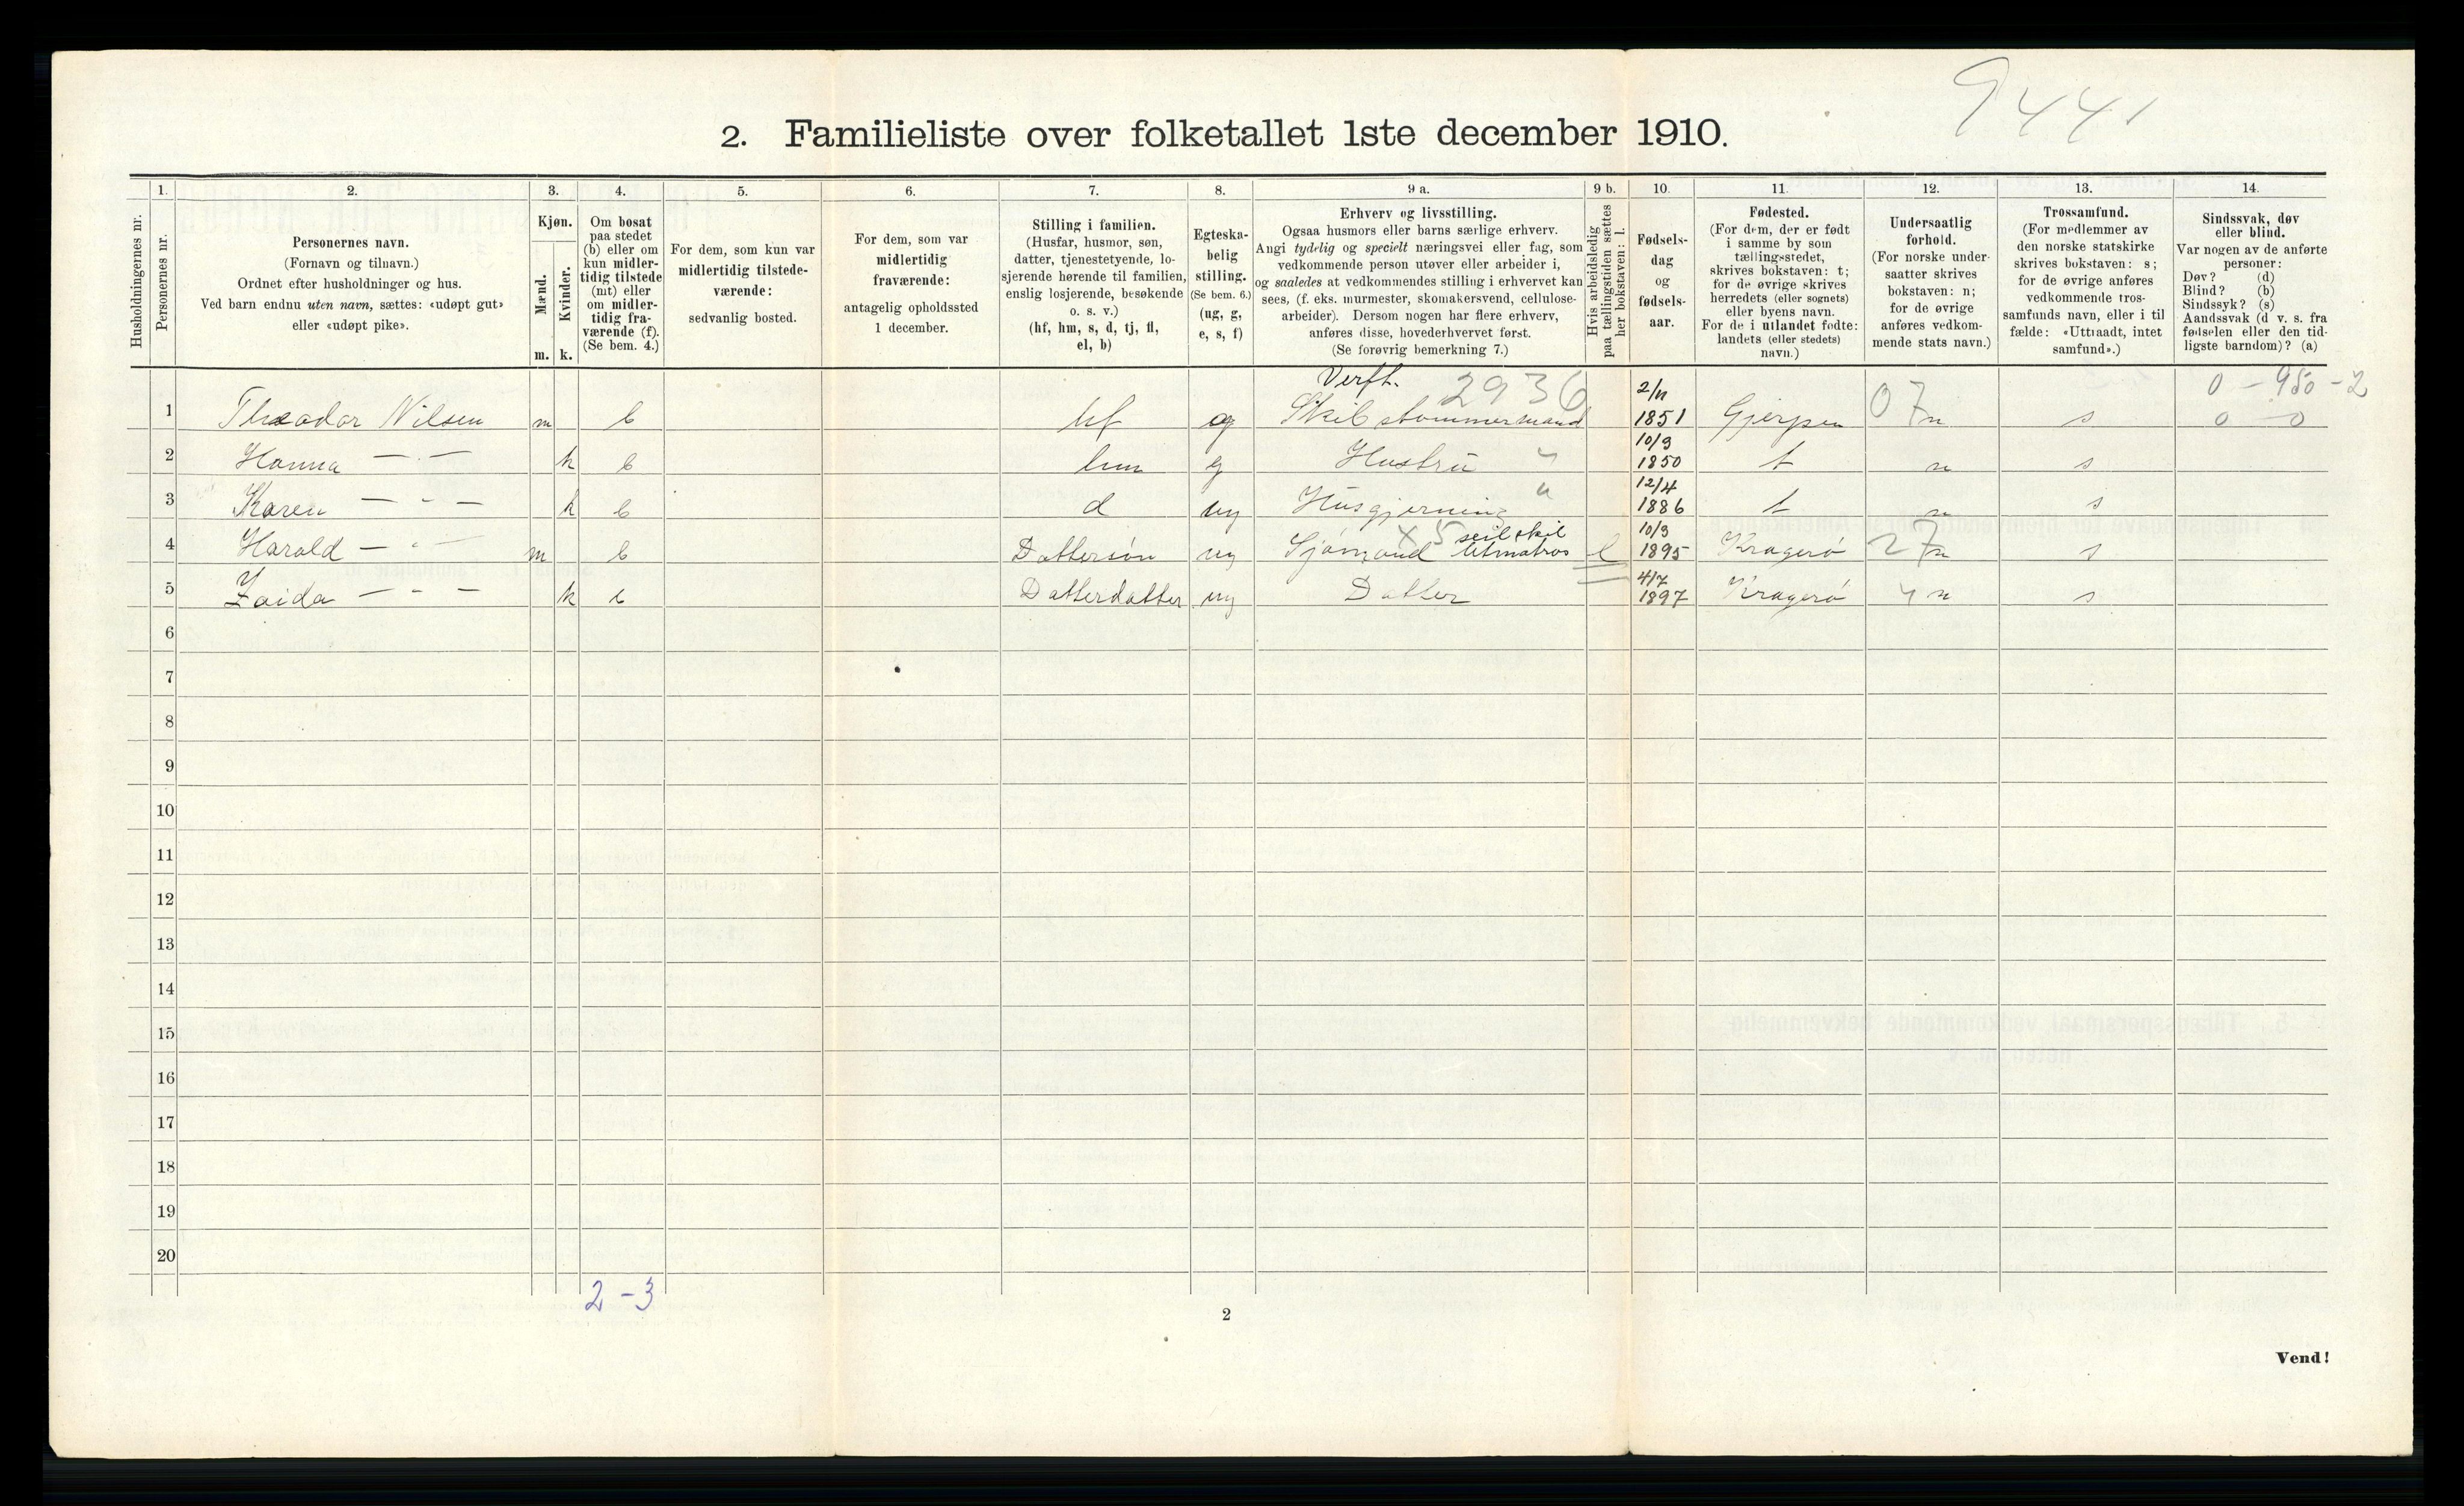 9441
2. Familieliste over folketallet 1ste december 1910.
Husholdningernes nr.
1.
Personernes nr.
2.
Personernes navn.
(Fornavn og tilnavn.)
Ordnet efter husholdninger og hus.
Ved barn endnu uten navn, sættes: «udøpt gut»
eller «udøpt pike».
3.
Kjøn.
Mænd.
Kvinder.
m. k.
4.
Om bosat
paa stedet
(b) eller om
kun midler-
tidig tilstede
(mt) eller
om midler-
tidig fra-
værende (f).
(Se bem. 4.)
5.
For dem, som kun var
midlertidig tilstede-
værende:
sedvanlig bosted.
6.
For dem, som var
midlertidig
fraværende:
antagelig opholdssted
1 december.
7.
Stilling i familien.
(Husfar, husmor, søn,
datter, tjenestetyende, lo-
sjerende hørende til familien,
enslig losjerende, besøkende
o. s. v.)
(hf, hm, s, d, tj, fl,
el, b)
8.
Egteska-
belig
stilling.
(Se bem. 6.)
(ug, g,
e, s, f)
9 a.
Erhverv og livsstilling.
Ogsaa husmors eller barns særlige erhverv.
Angi tydelig og specielt næringsvei eller fag, som
vedkommende person utøver eller arbeider i,
og saaledes at vedkommendes stilling i erhvervet kan
sees, (f. eks. murmester, skomakersvend, cellulose-
arbeider). Dersom nogen har flere erhverv,
anføres disse, hovederhvervet først.
(Se forøvrig bemerkning 7.)
9 b.
Hvis arbeidsledig
paa tællingstiden sættes
her bokstaven: l.
10.
Fødsels-
dag
og
fødsels-
aar.
11.
Fødested.
(For dem, der er født
i samme by som
tællingsstedet,
skrives bokstaven: t;
for de øvrige skrives
herredets (eller sognets)
eller byens navn.
For de i utlandet fødte:
landets (eller stedets)
navn.)
12.
Undersaatlig
forhold.
(For norske under-
saatter skrives
bokstaven: n;
for de øvrige
anføres vedkom-
mende stats navn.)
13.
Trossamfund.
(For medlemmer av
den norske statskirke
skrives bokstaven: s;
for de øvrige anføres
vedkommende tros-
samfunds navn, eller i til
fælde: «Uttraadt, intet
samfund».)
14.
Sindssvak, døv
eller blind.
Var nogen av de anførte
personer:
Døv? (d)
Blind? (b)
Sindssyk? (s)
Aandssvak (d v. s. fra
fødselen eller den tid-
ligste barndom)? (a)
Verft. 2936 2/11 0 - 950 - 2
1 Theodor Nilsen m b hf g Skibstømmermand 1851 Gjerpen 07 n s 0 - 0
10/9
2 Hanna — - — k b hm g Hustru " 1850 t n s
12/4
3 Karen — - — k b d ug Husgjerning " 1886 t n s
X5 seilskib 10/9
4 Harald — - — m b Dattersøn ug Sjømand letmatros l 1895 Kragerø 27 n s
4/7
5 Zaida — - — k b Datterdatter ug Datter 1897 Kragerø " n s
6
7
8
9
10
11
12
13
14
15
16
17
18
19
20
2 - 3
2
Vend!